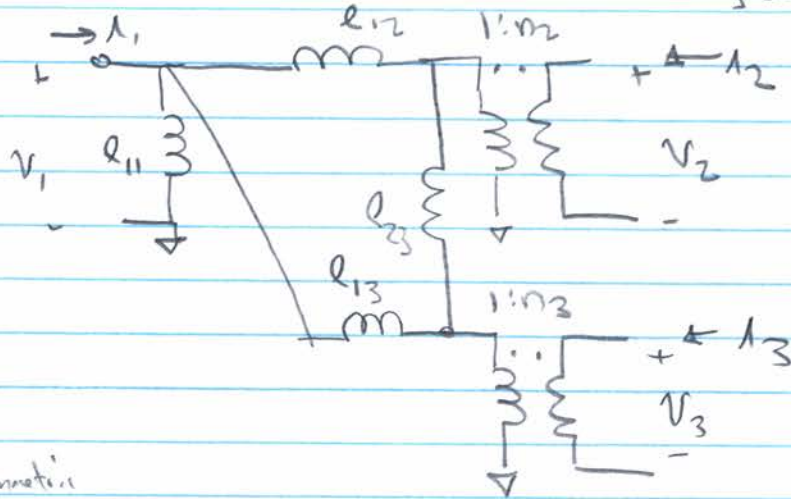 i₁ l₁₂ 1:n₂
+ + i₂
V₁ l₁₁ V₂
- l₂₃ -
l₁₃ 1:n₃
+ i₃
V₃
-